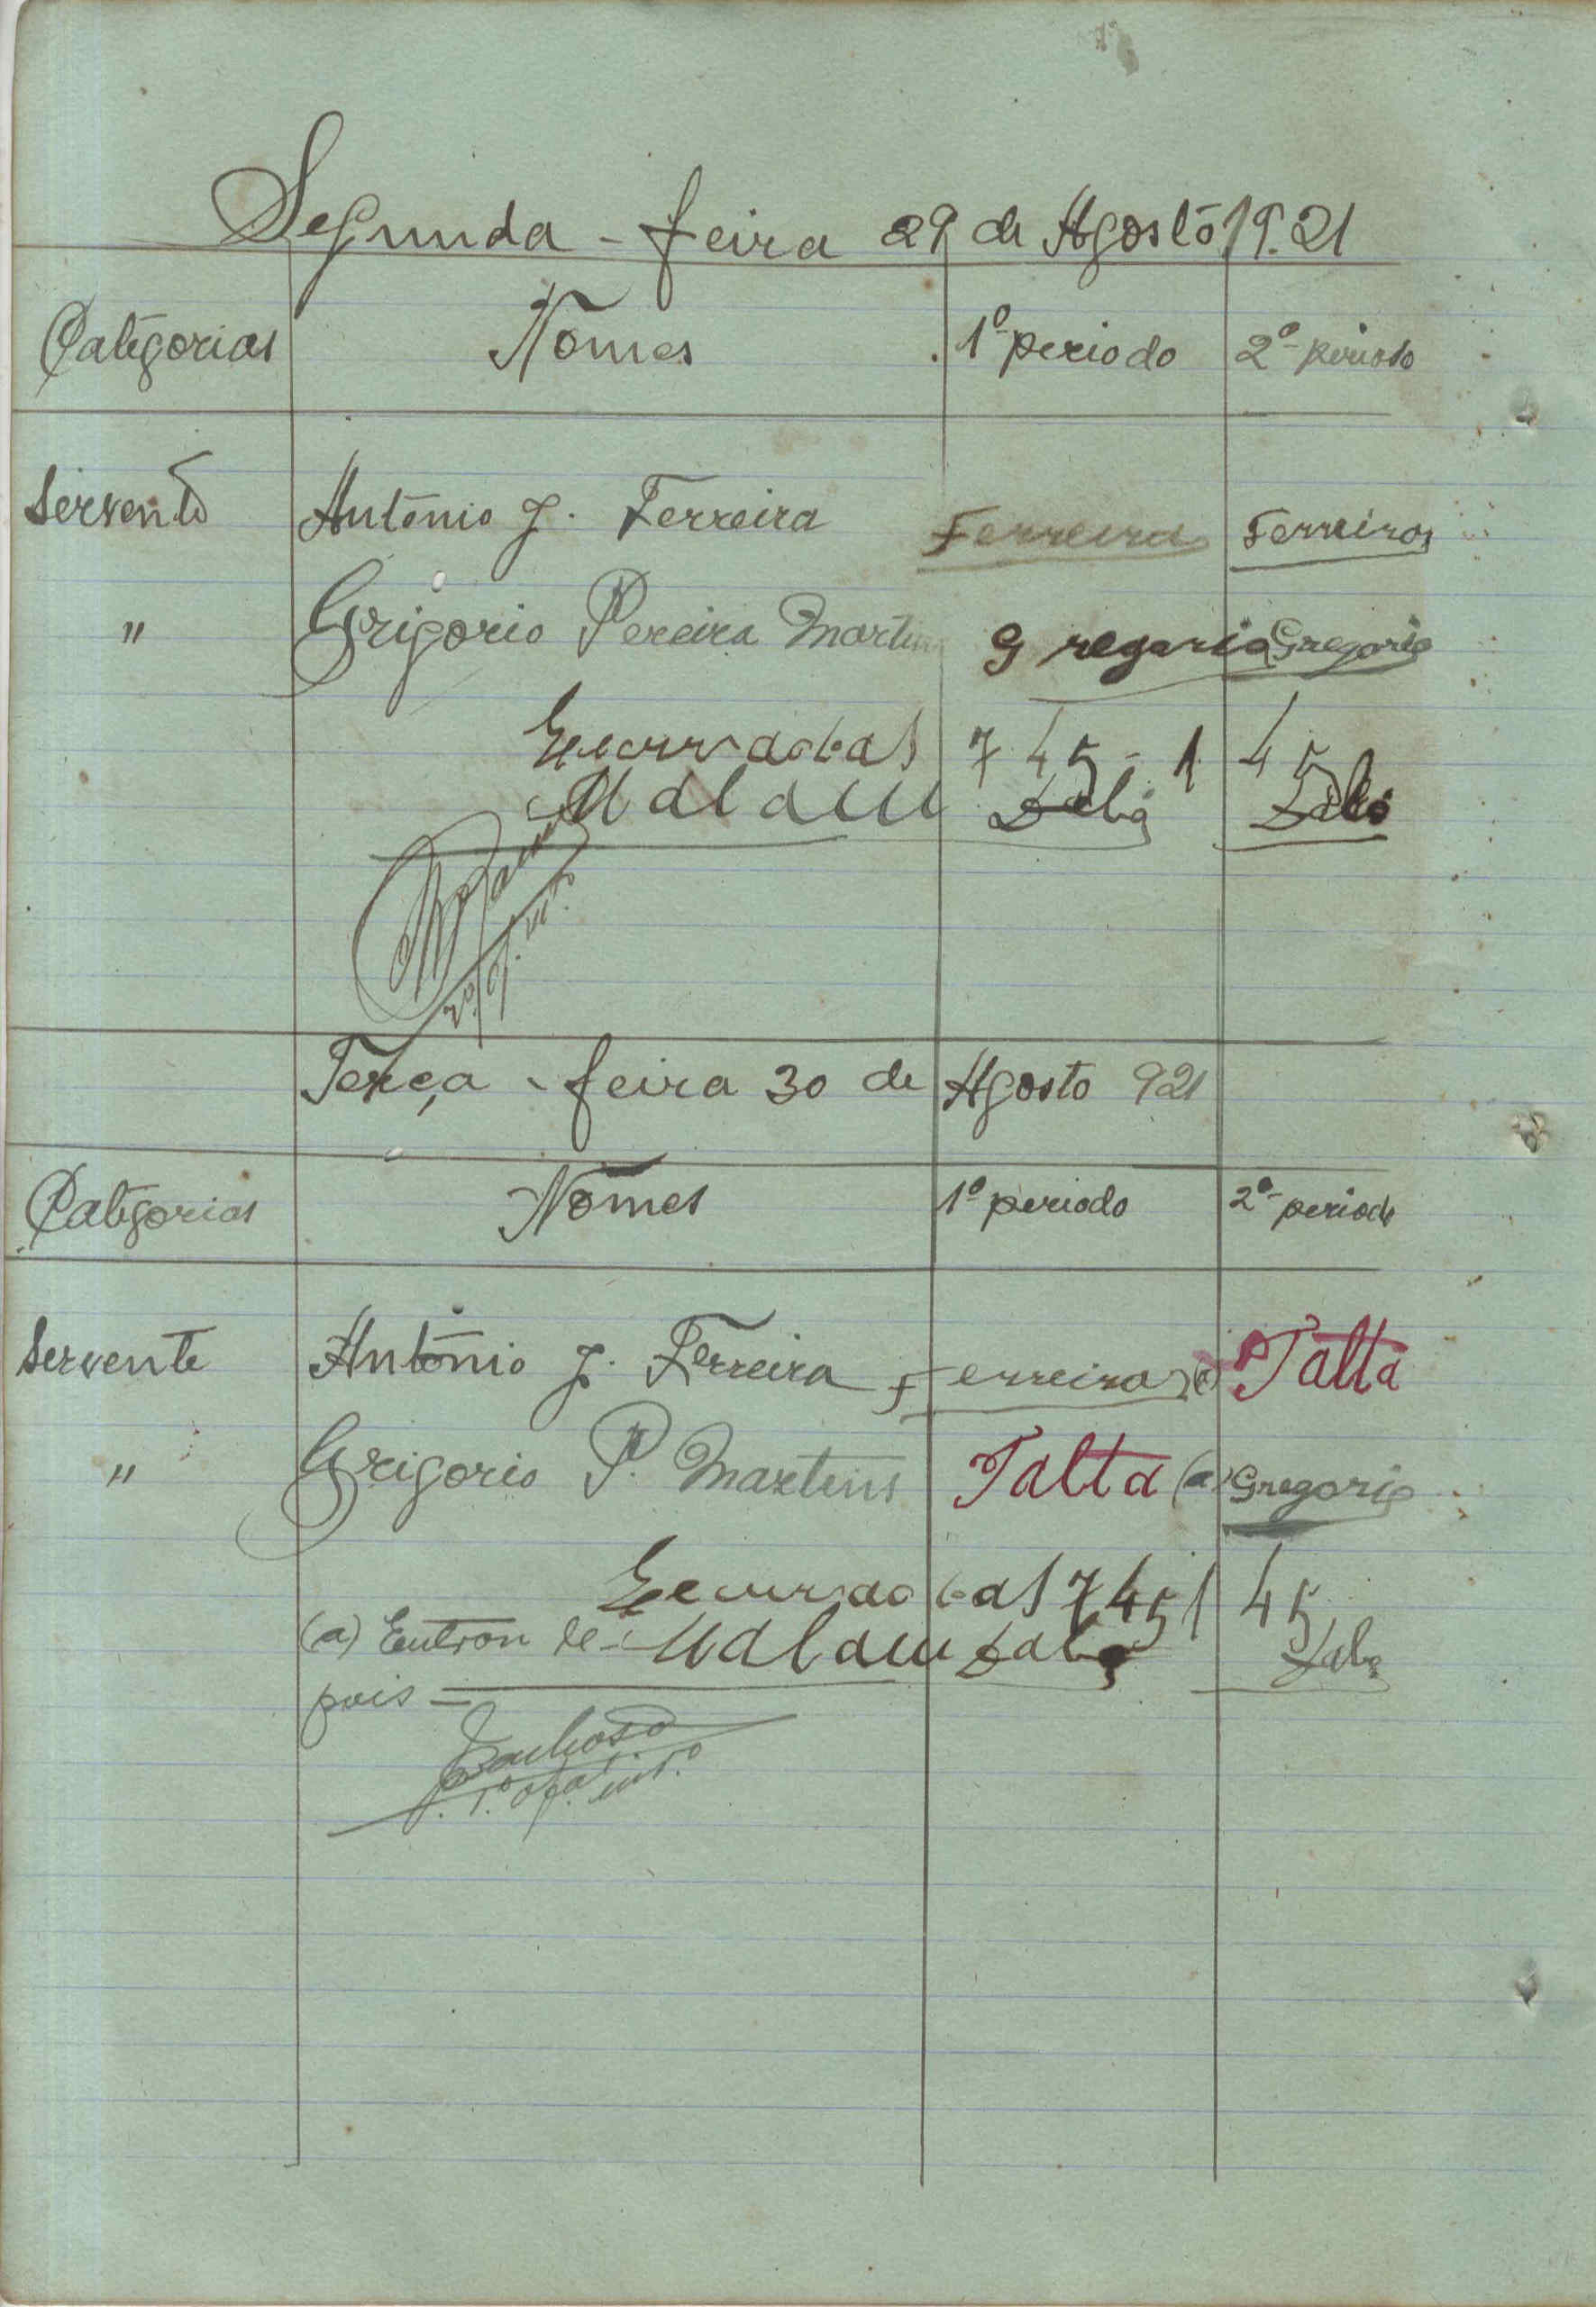 Segunda-feira 29 de Agosto 19.21
Categorias Nomes 1º periodo 2º periodo
Servente António J. Ferreira Ferreira Ferreira
" Grigorio Pereira Martins Gregorio Gregorio
745-1 45
Malam
Terça-feira 30 de Agosto 921
Categorias Nomes 1º periodo 2º periodo
Servente António J. Ferreira Ferreira (a) Falta
" Grigorio P. Martins Falta (a) Gregorio
7451 45
(a) Entrou de- Malam
pois
Barbosa